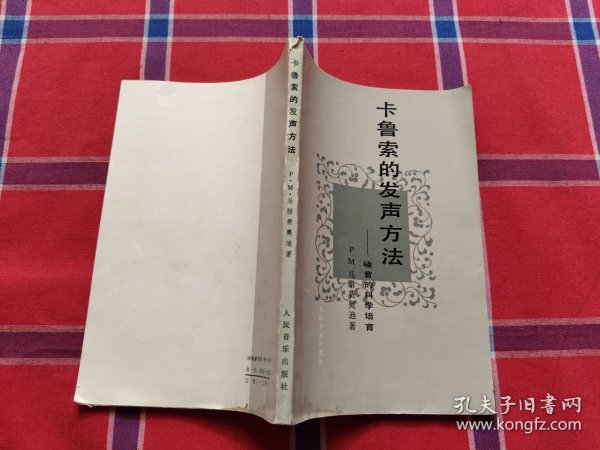 卡鲁索的发声方法
——嗓音的科学培育
P·M·马腊费奥迪著
卡鲁索的发声方法
P·M·马腊费奥迪著
人民音乐出版社
孔夫子旧书网
www.kongfz.com